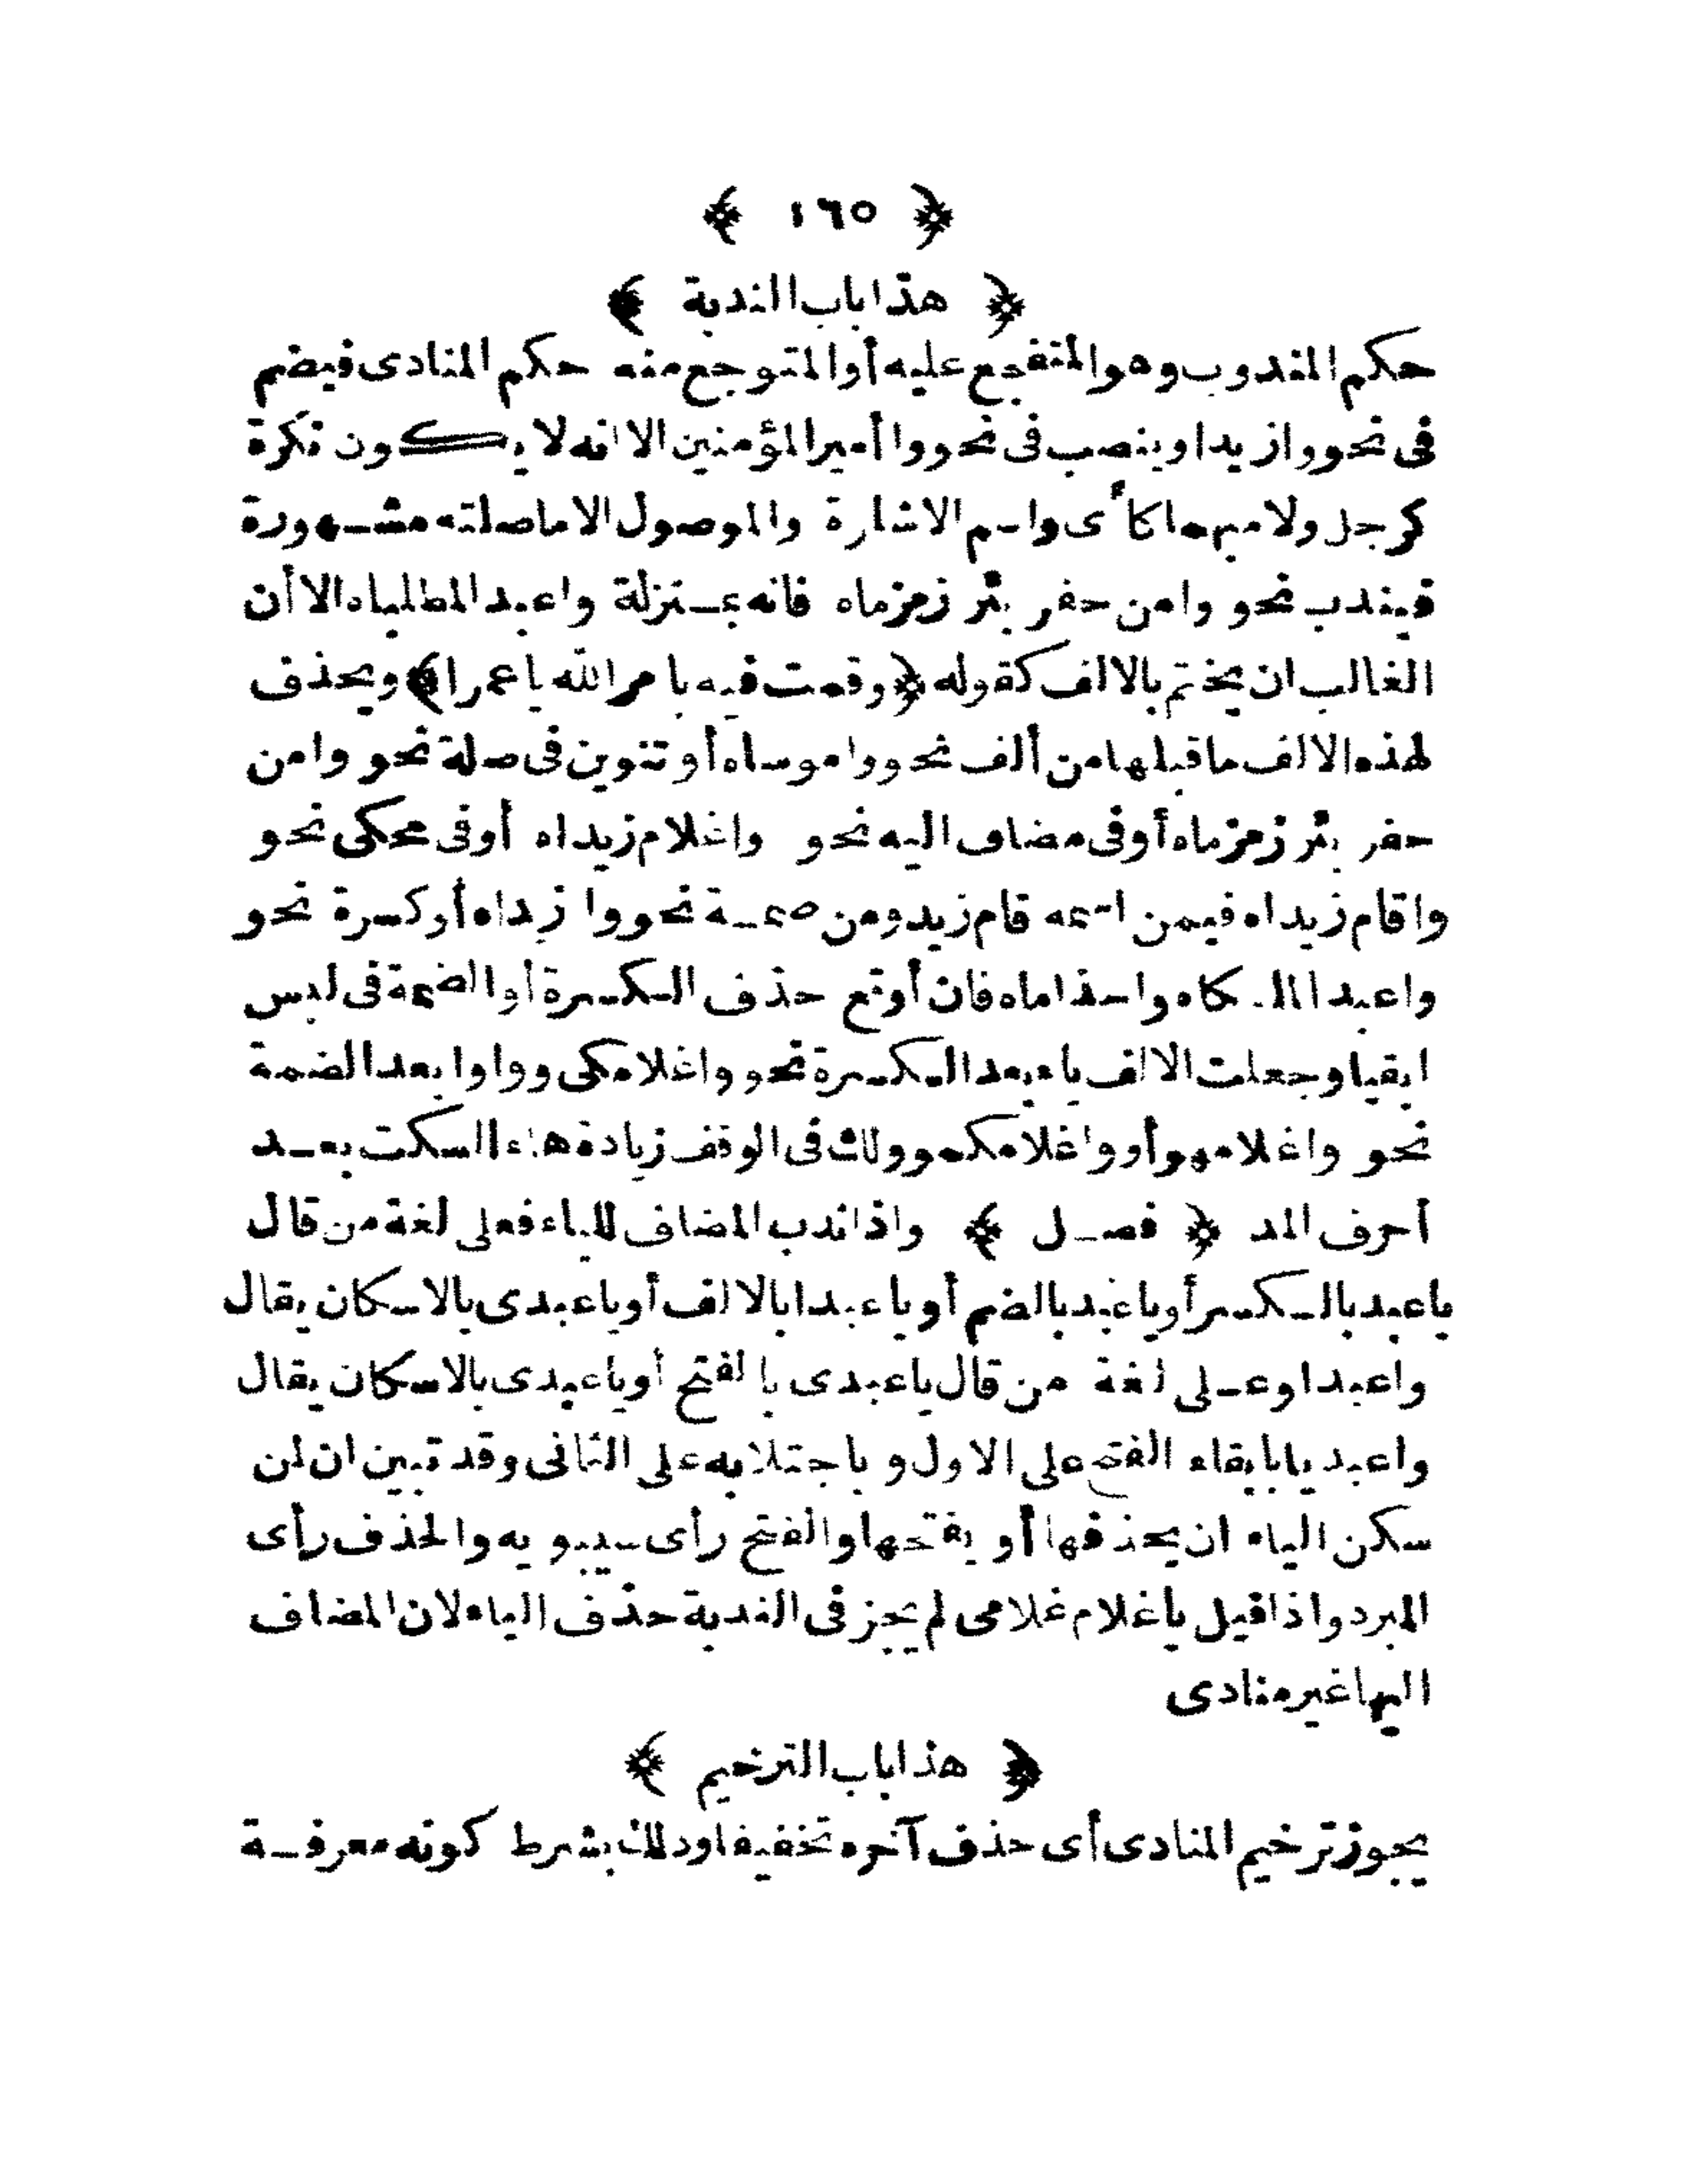 ﴿ ١٦٥ ﴾
﴿ هذا باب الندبة ﴾
حكم المندوب وهو المتفجع عليه أو المتوجع منه حكم المنادى فيضم
فى نحو وازيدا وينصب فى نحو وا أمير المؤمنين الا انه لا يكون نكرة
كرجل ولا مبهما كأى واسم الاشارة والموصول الا ما صلته مشهورة
فيندب نحو وامن حفر بئر زمزماه فانه بمنزلة واعبد المطلباه الا أن
الغالب ان يختم بالالف كقوله ﴿وقمت فيه بامر الله يا عمرا﴾ ويحذف
لهذه الالف ما قبلها من ألف نحو واموساه أو تنوين فى صلة نحو وامن
حفر بئر زمزماه أو فى مضاف اليه نحو واغلام زيداه أو فى محكى نحو
واقام زيداه فيمن اسمه قام زيد ومن ضمة نحو وا زيداه أو كسرة نحو
واعبد الملكاه واحذاماه فان أوقع حذف الكسرة أو الضمة فى لبس
ابقيا وجعلت الالف ياء بعد الكسرة نحو واغلامكى وواوا بعد الضمة
نحو واغلامهو أو واغلامكمو ولك فى الوقف زيادة هاء السكت بعد
أحرف المد ﴿ فصل ﴾ واذا ندب المضاف للياء فعلى لغة من قال
ياعبد بالكسر أو ياعبد بالضم أو ياعبدا بالالف أو ياعبدى بالاسكان يقال
واعبدا وعلى لغة من قال ياعبدى بالفتح أو ياعبدى بالاسكان يقال
واعبديا بابقاء الفتح على الاول و باجتلابه على الثانى وقد تبين ان لمن
سكن الياء ان يحذفها أو يفتحها والفتح رأى سيبويه والحذف رأى
المبرد واذا قيل ياغلام غلامى لم يجز فى الندبة حذف الياء لان المضاف
اليها غير منادى
﴿ هذا باب الترخيم ﴾
يجوز ترخيم المنادى أى حذف آخره تخفيفا وذلك بشرط كونه معرفة